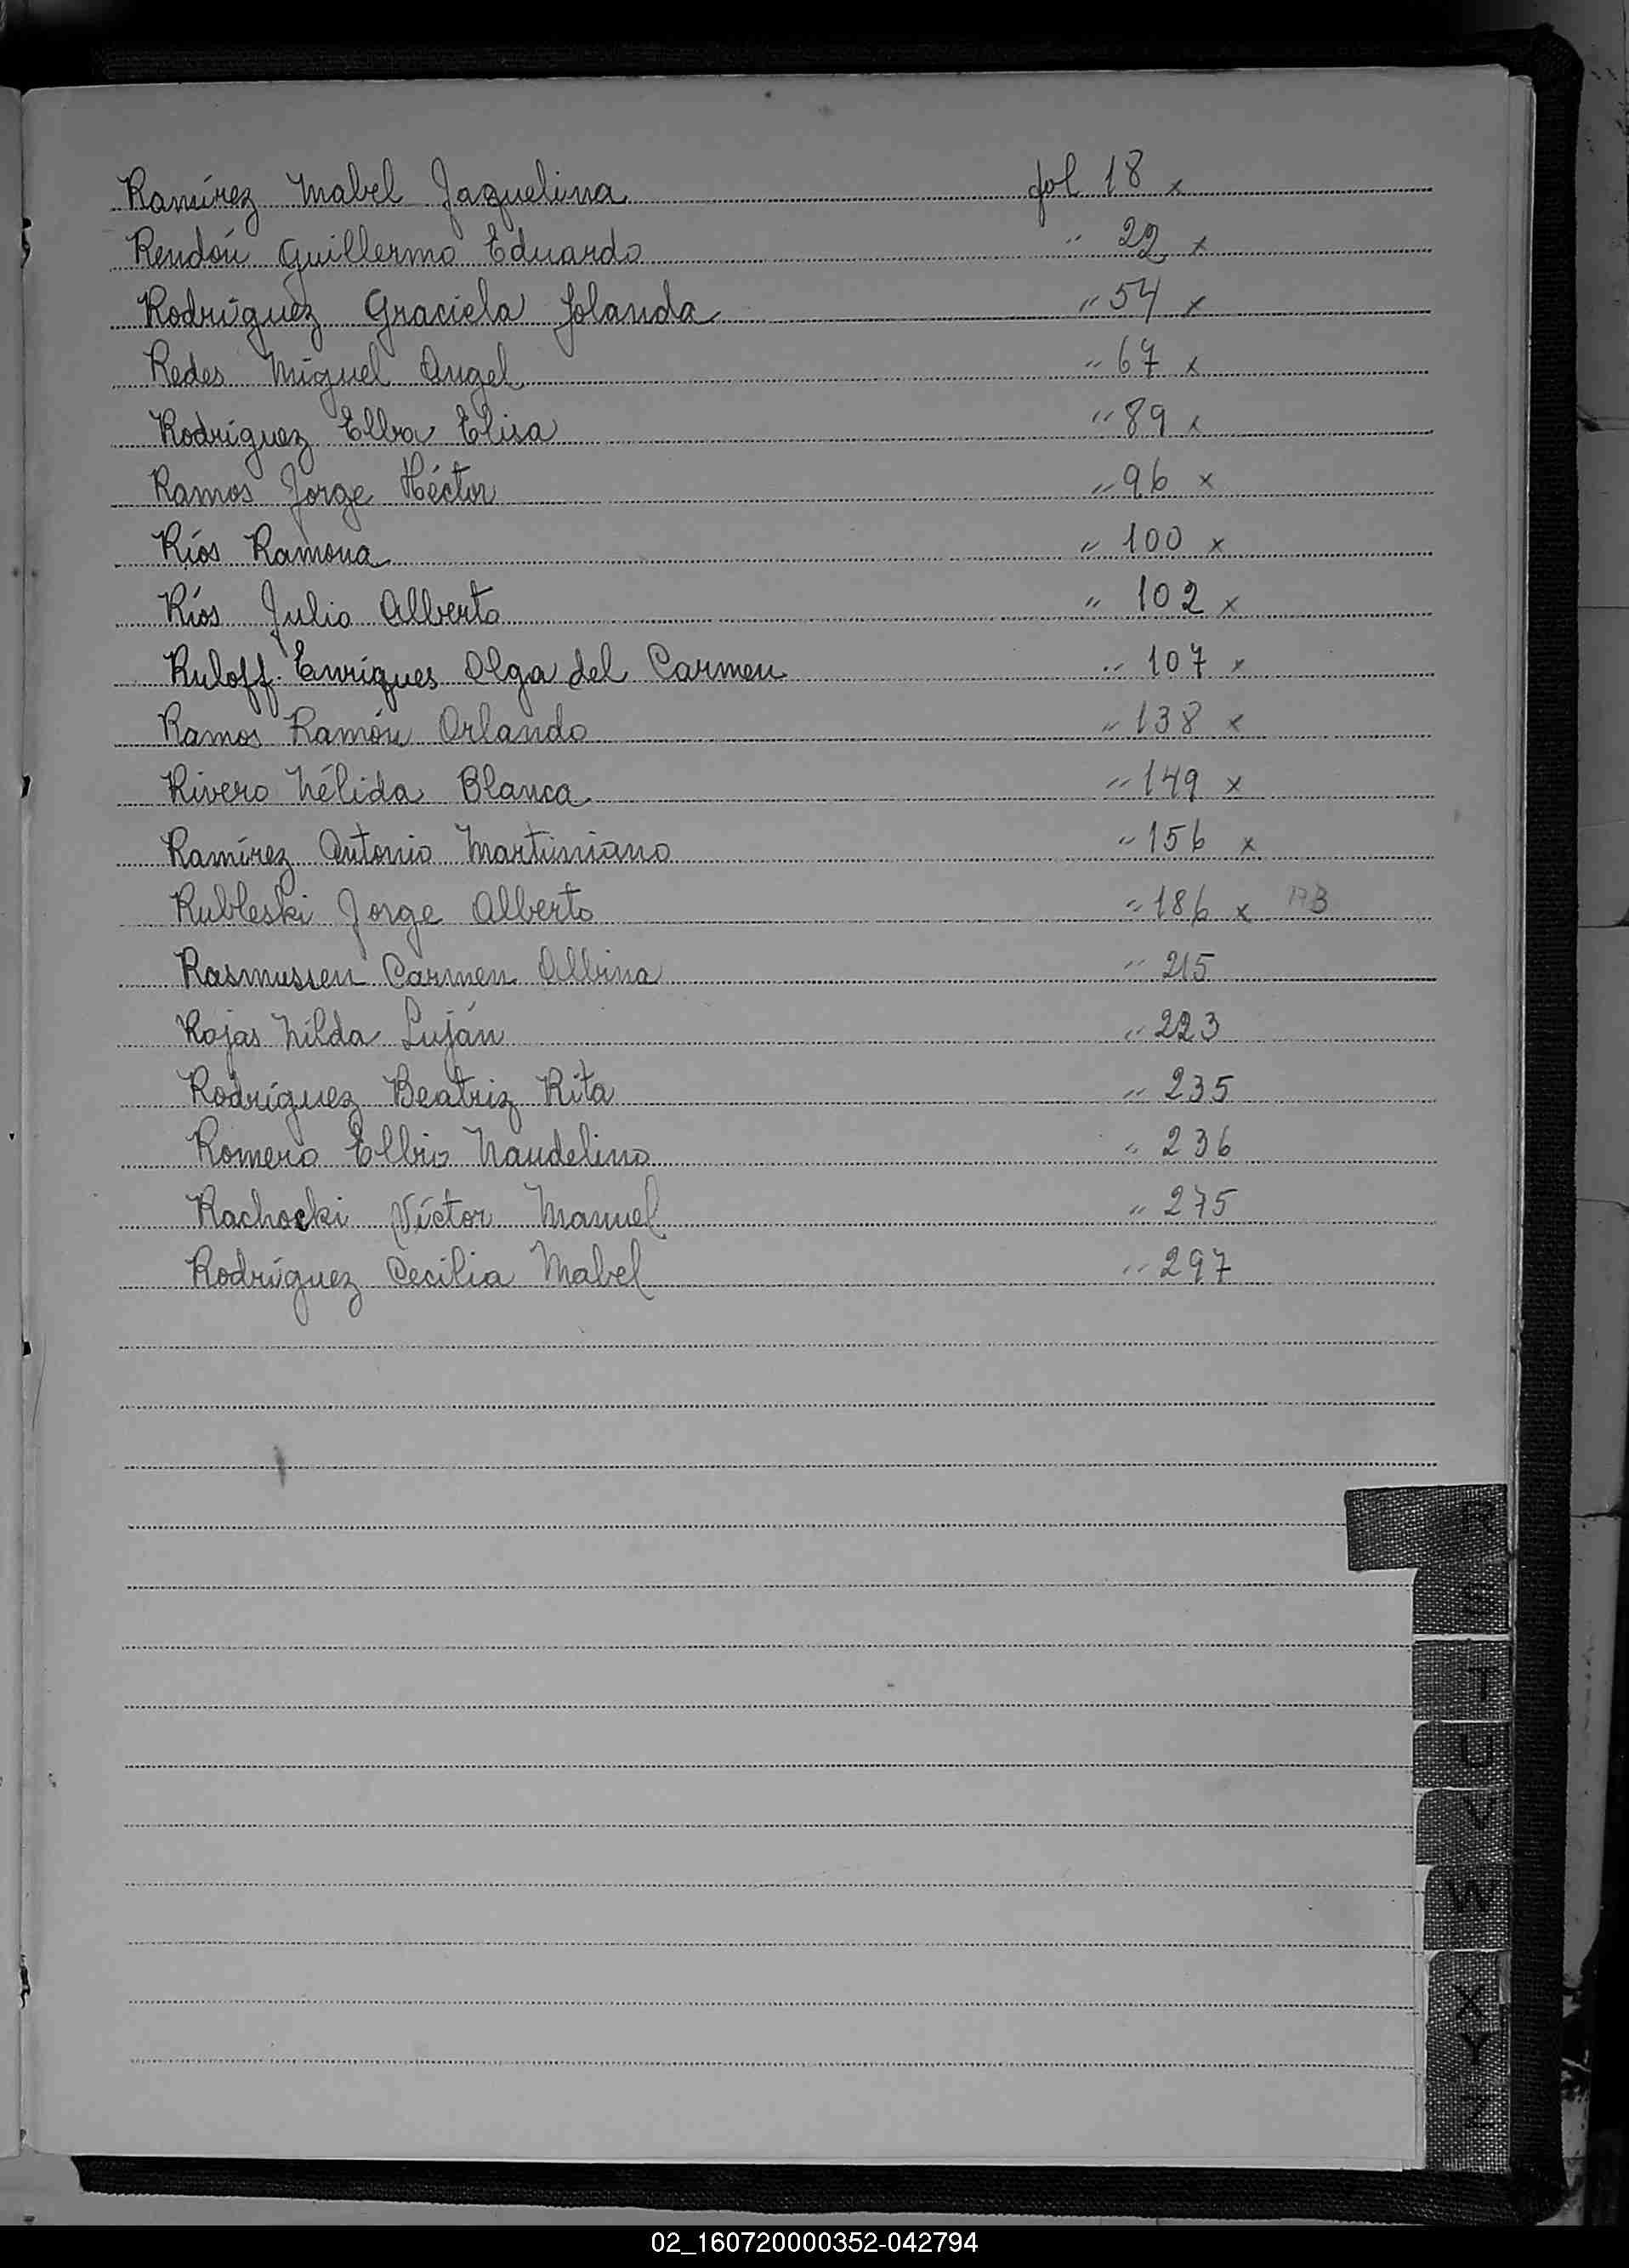 Ramírez Mabel Jaquelina fol 18 x
Rendón Guillermo Eduardo " 22 x
Rodríguez Graciela Yolanda " 54 x
Redes Miguel Angel " 67 x
Rodríguez Elba Elisa " 89 x
Ramos Jorge Héctor " 96 x
Ríos Ramona " 100 x
Ríos Julio Alberto " 102 x
Ruloff Enriques Olga del Carmen " 107 x
Ramos Ramón Orlando " 138 x
Rivero Nélida Blanca " 149 x
Ramírez Antonio Martiniano " 156 x
Rubleski Jorge Alberto " 186 x
Rasmussen Carmen Albina " 215
Rojas Nilda Luján " 223
Rodríguez Beatriz Rita " 235
Romero Elbio Naudelino " 236
Rachocki Víctor Manuel " 275
Rodríguez Cecilia Mabel " 297
R
S
T
U
V
W
X
Y
Z
02_160720000352-042794